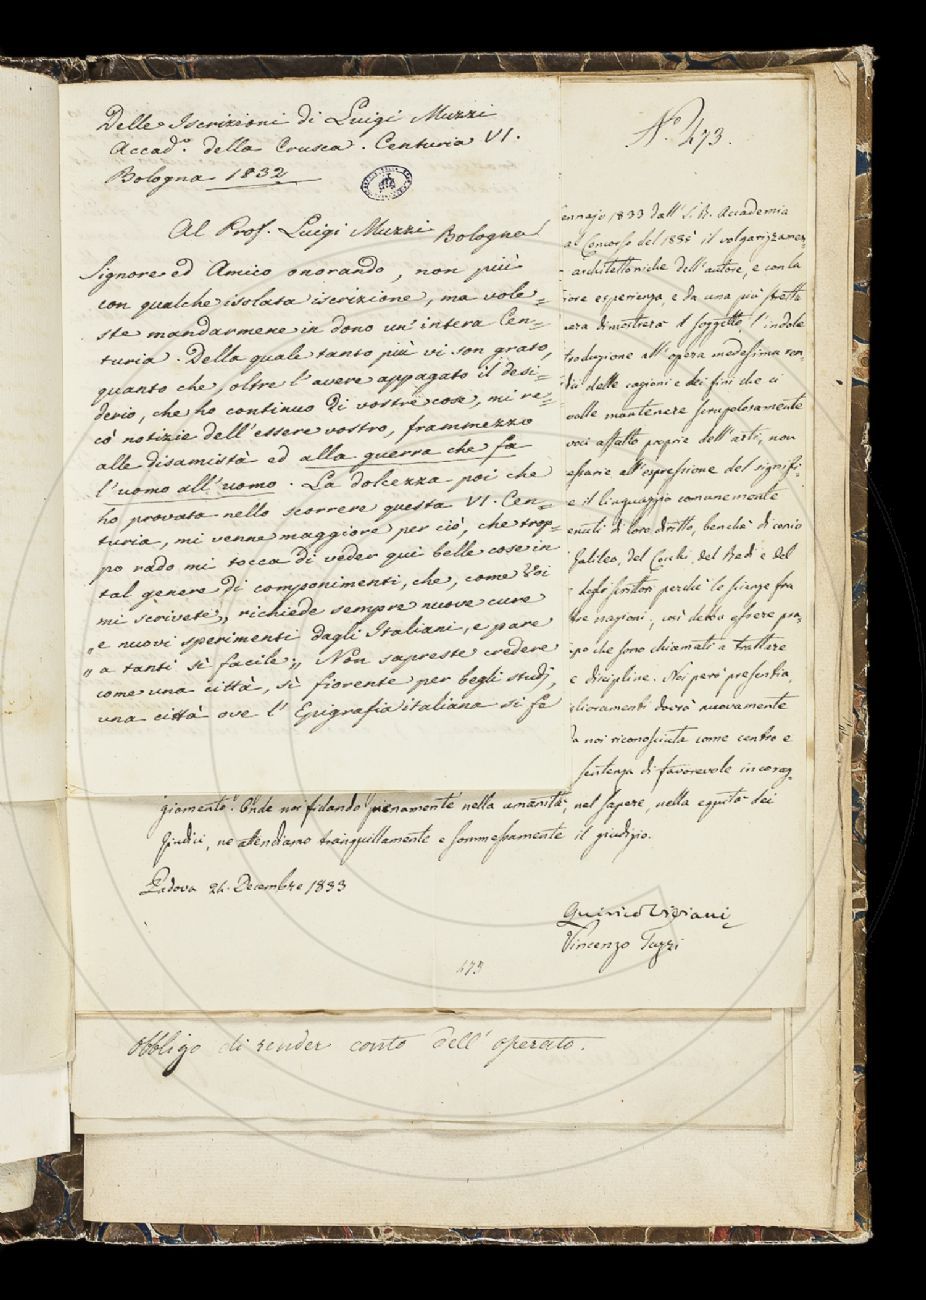 Delle Iscrizioni di Luigi Muzzi
Accad.º della Crusca. Centuria VI.
Bologna 1832
Al Prof. Luigi Muzzi Bologna
Signore ed Amico onorando, non più
con qualche isolata iscrizione, ma vole=
ste mandarmene in dono un'intera Cen=
turia. Della quale tanto più vi son grato,
quanto che, oltre l'avere appagato il desi=
derio, che ho continuo di vostre cose, mi re=
cò notizie dell'essere vostro, frammezzo
alle disamistà ed alla guerra che fa
l'uomo all'uomo. La dolcezza poi che
ho provata nello scorrere questa VI. Cen=
turia, mi venne maggiore per ciò, che trop=
po rado mi tocca di veder qui belle cose in
tal genere di componimenti, che, come Voi
mi scrivete, richiede sempre nuove cure
„ e nuovi sperimenti dagli Italiani, e pare
„ a tanti sì facile „ Non sapreste credere
come una città, sì fiorente per begli studj,
una città ove l'Epigrafia italiana si fè
Nº 473.
ennajo 1833 dall'I. R. Accademia
al Concorso del 1835 il volgarizzamen=
architettoniche dell'autore, e con la
iore esperienza, e da una più stretta
era dimostrerà il soggetto, l'indole
troduzione all'opera medesima ren=
dia delle cagioni e dei fini che ci
volle mantenere scrupolosamente
voci affatto proprie dell'arti, non
essarie all'espressione del signifi=
e il linguaggio comunemente
enuti di loro diritto, benchè di conio
Galileo, del Cocchi, del Redi e del
degli scrittori perchè le scienze fra
tre nazioni, così debbe essere pro=
po che sono chiamati a trattare
e discipline. Noi però presentia,
lioramenti dovrà nuovamente
da noi riconosciuta come centro e
sentenza di favorevole incorag=
giamento. Onde noi fidando pienamente nella umanità, nel sapere, nella equità dei
Giudici, ne attendiamo tranquillamente e sommessamente il giudizio.
Padova 24. Decembre 1833
Quirico Viviani
Vincenzo Tuzzi
473
Obbligo di render conto dell'operato.